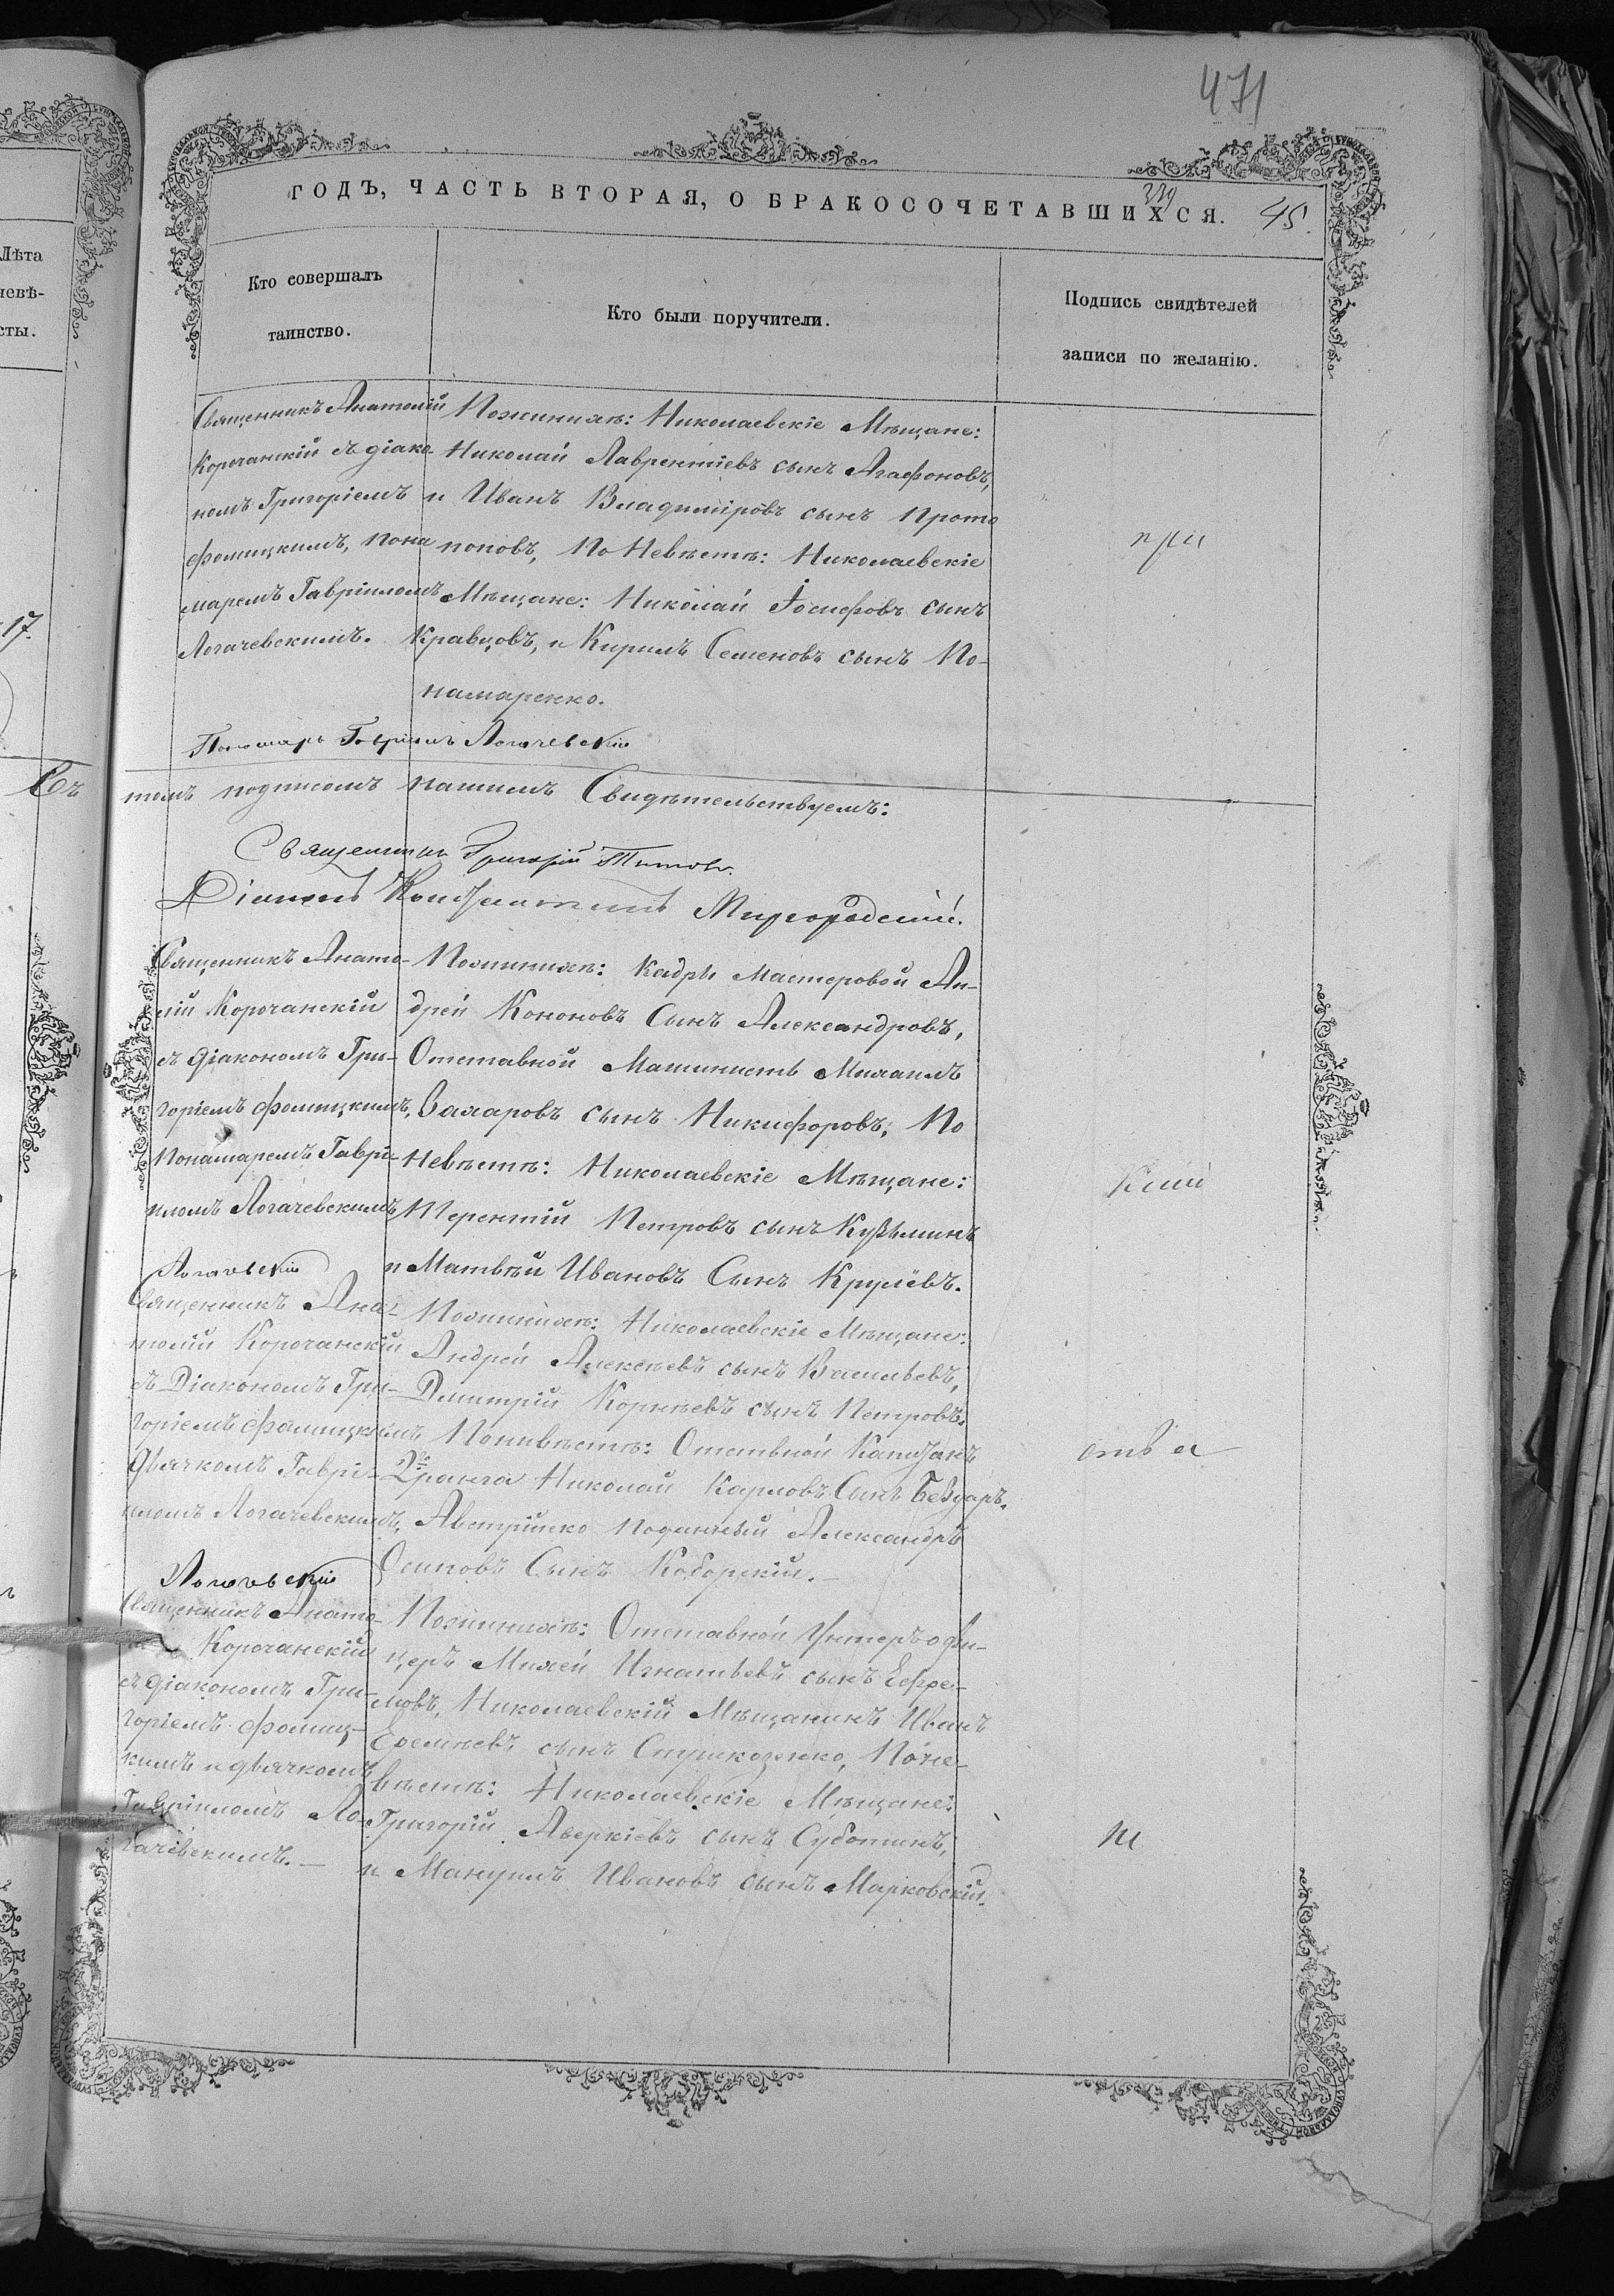 471
ГОДЪ, ЧАСТЬ ВТОРАЯ, О БРАКОСОЧЕТАВШИХСЯ.
45.
Лѣта
невѣ-
сты.
Кто совершалъ
таинство.
Кто были поручители.
Подпись свидѣтелей
записи по желанію.
17.
Священникъ Анатолій
Корочанскій съ діако
номъ Григоріемъ
Фомицкимъ, пона
маремъ Гавріиломъ
Логачевскимъ.
Пожинихѣ: Николаевскіе Мѣщане:
Николай Лаврентіевъ сынъ Агафоновъ,
и Иванъ Владиміровъ сынъ Прото
поповъ, По Невѣстѣ: Николаевскіе
Мѣщане: Николай Іосифовъ сынъ
Кравцовъ, и Кирилъ Семеновъ сынъ По-
намаренко.
при
Пономарь Гавріилъ Логачевскій
томъ подписомъ нашимъ Свидѣтельствуемъ:
Священникъ Григорій Титовъ.
Діаконъ Константинъ Миргородскій.
Священникъ Анато-
лій Корочанскій
съ діакономъ Гри-
горіемъ Фомицкимъ,
Понамаремъ Гаврі-
иломъ Логачевскимъ
Логачевскій
Пожинихѣ: Кадръ Мастеровой Ан-
дрей Кононовъ Сынъ Александровъ,
Отставной Машинистъ Михаилъ
Захаровъ сынъ Никифоровъ, По
Невѣстѣ: Николаевскіе Мѣщане:
Терентій Петровъ сынъ Кузьминъ
и Матвѣй Ивановъ Сынъ Крулёвъ.
Священникъ Ана-
толій Корочанскій
съ Діакономъ Гри-
горіемъ Фомицкимъ
Дьячкомъ Гаврі-
иломъ Логачевскимъ,
Логачевскій
Пожинихѣ: Николаевскіе Мѣщане:
Андрей Алексѣевъ сынъ Васильевъ,
Дмитрій Корнѣевъ сынъ Петровъ.
Понивѣстѣ: Отствной Капитанъ
2го ранга Николай Карловъ Сынъ
Австрійско Поданный Александръ
Осиповъ Сынъ Коборскій.
Священникъ Анато-
Корочанскій
съ діакономъ Гри-
горіемъ Фомиц-
кимъ и дьячкомъ
Гавріиломъ Ло-
гачевскимъ.
Пожинихѣ: Отставной Унтеръ офи-
церъ Михей Игнатьевъ сынъ Ефре-
мовъ, Николаевскій Мѣщанинъ Иванъ
Еремѣевъ сынъ Поне-
вѣстѣ: Николаевскіе Мѣщане:
Григорій Аверкіевъ сынъ Суботинъ,
и Мануилъ Ивановъ сынъ Марковскій.